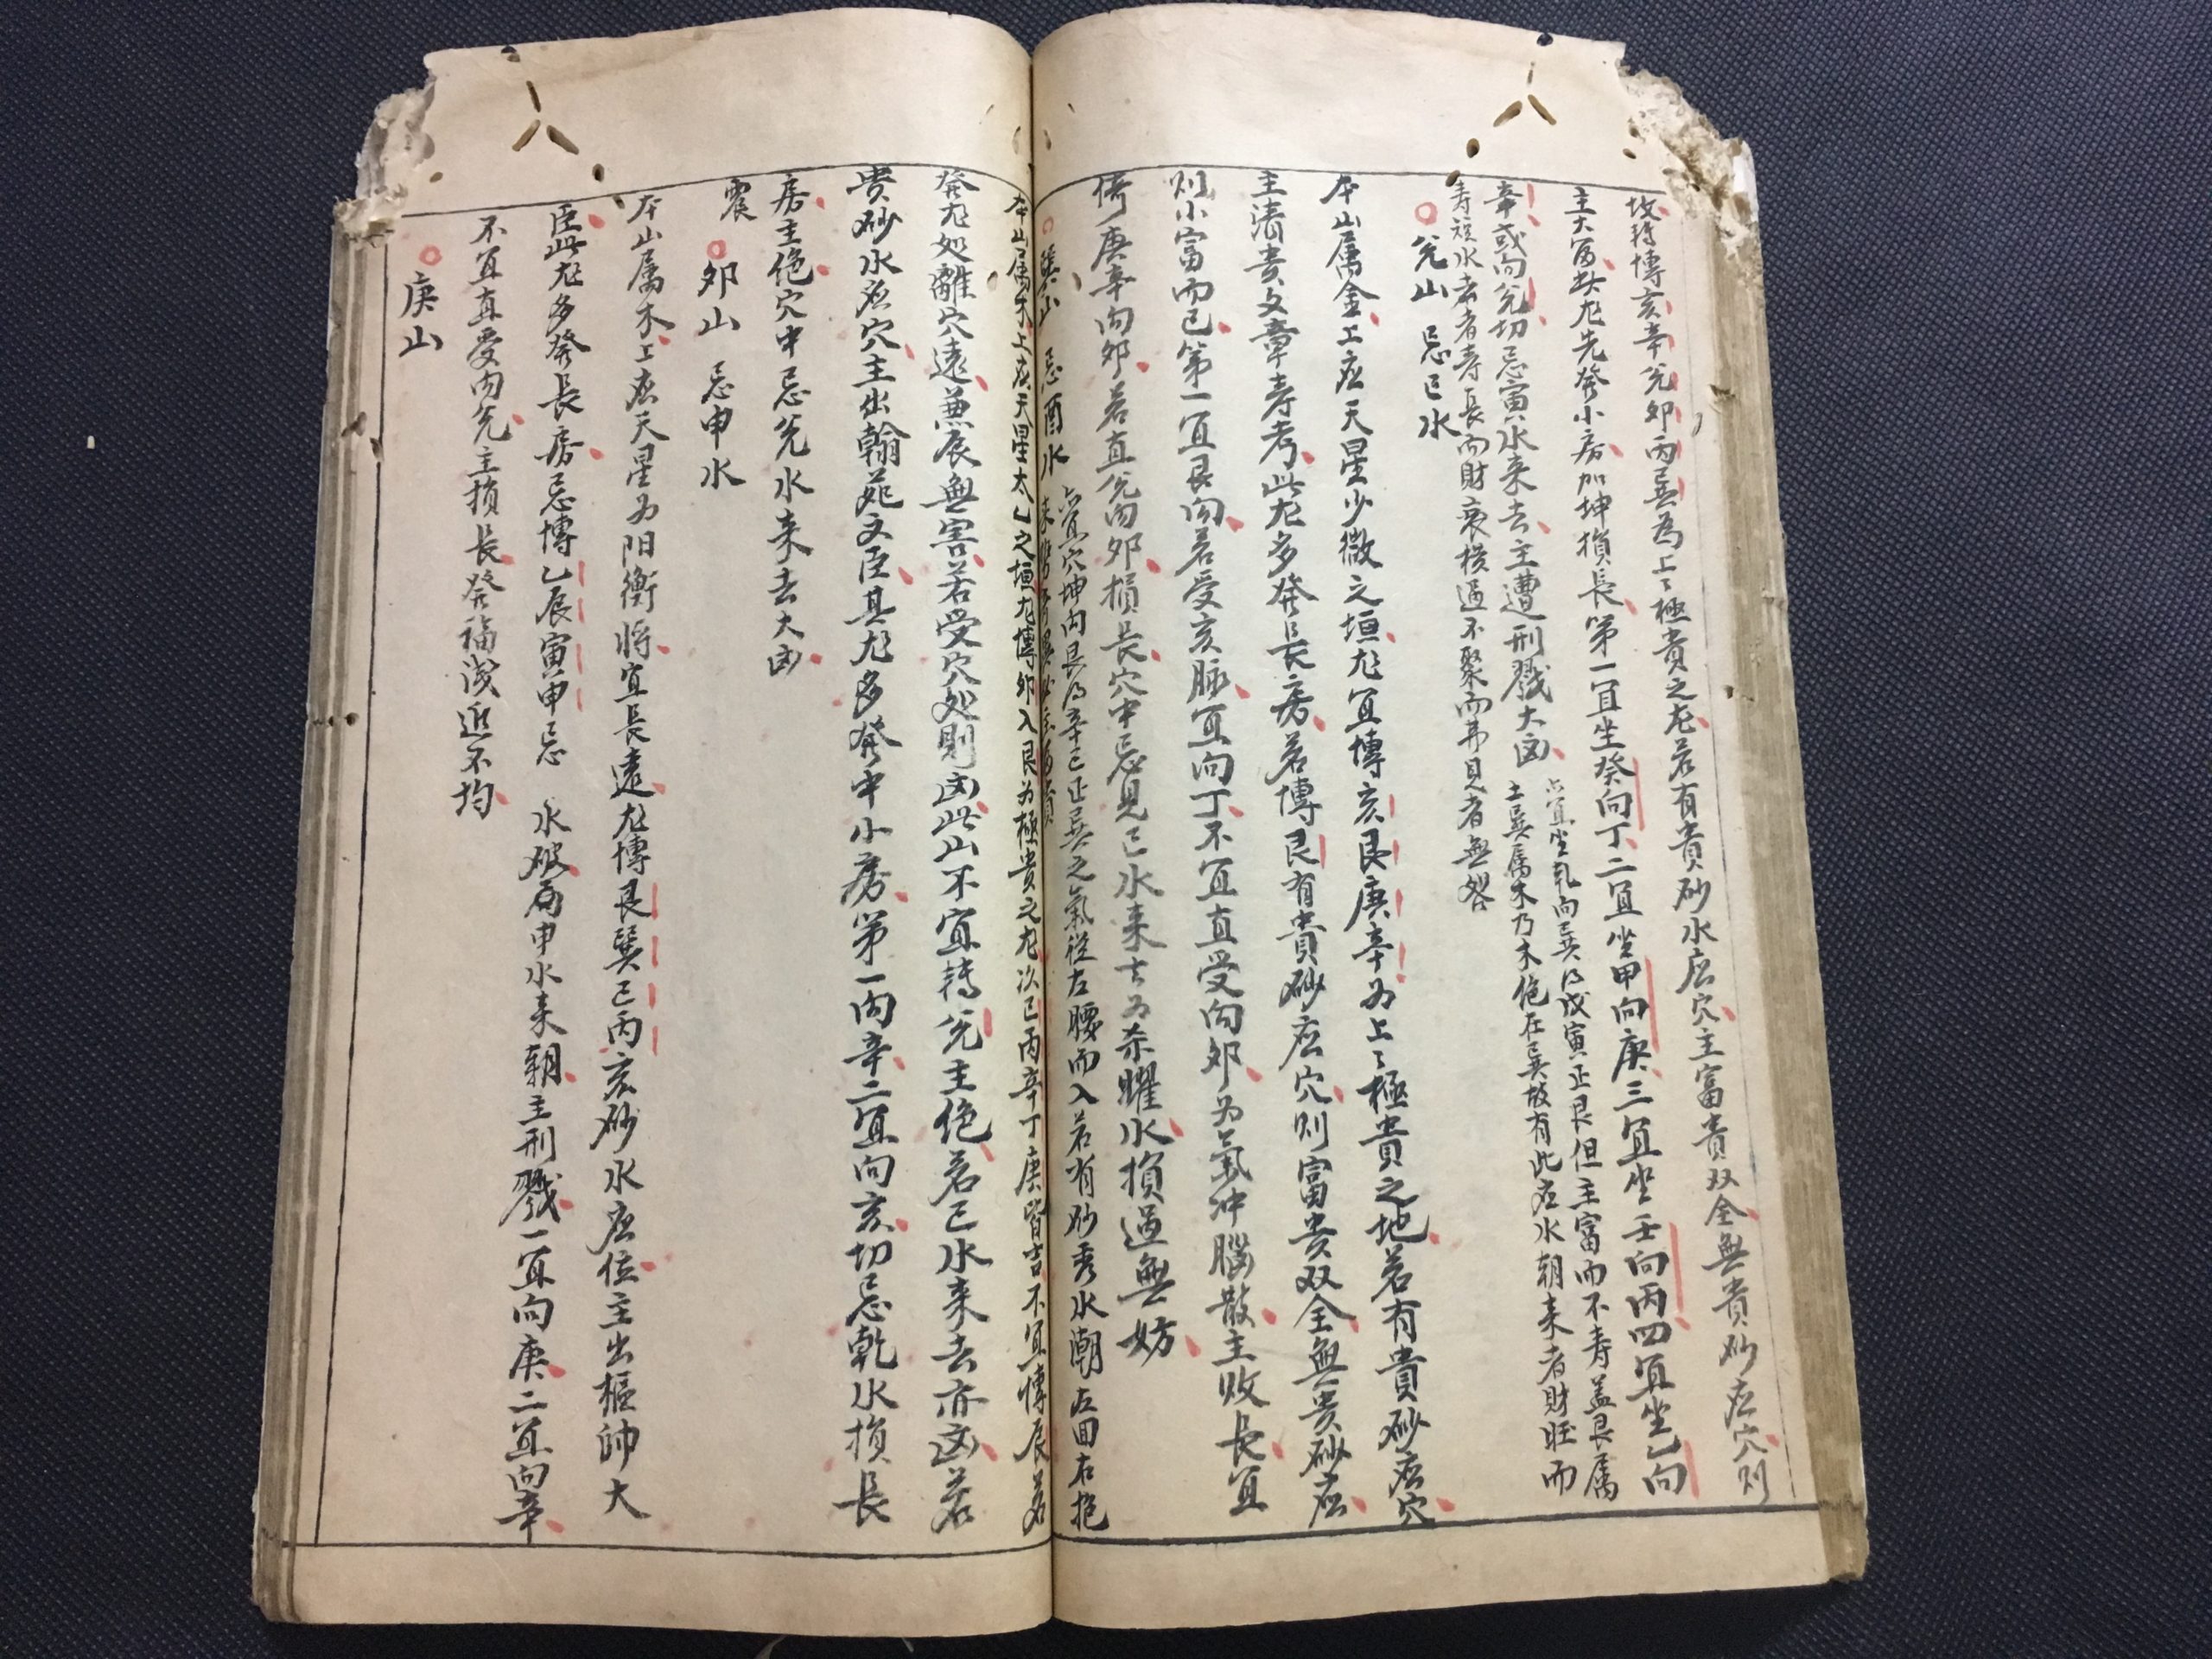 故轉博亥辛兊卯丙巽為上〻極貴之龙若有貴砂水应穴主富貴双全無貴砂应穴则
主大富此龙先發小房加坤損長第一宜坐癸向丁二宜坐甲向庚三宜坐壬向丙四宜坐乙向
辛或向兊切忌寅水来去主遭刑戮大凶
点宜坐乾向巽内戌寅正艮但主富而不寿盖艮属
土巽属木乃木绝在巽故有此应水朝来者財旺而
寿短水去者寿長而財衰横過不聚而弗見者無咎
兊山 忌巳水
本山属金上应天星少微之垣龙宜博亥艮庚辛为上〻極貴之地若有貴砂应穴
主清贵文章寿考此龙多發長房若博艮有貴砂应穴则富贵双全無贵砂应
则小富而已第一宜艮向若受亥脉宜向丁不宜直受向卯为氣冲腦散主敗長宜
倚庚辛向卯若直兊向卯損長穴中忌見巳水来去为杀曜水損過無妨
点宜穴坤向艮内辛巳正巽之氣従左腰而入若有砂秀水潮左回右抱
巽山 忌酉水
本山属木上应天星太乙之垣龙博卯入艮为極貴之龙次巳丙辛丁庚皆吉不宜博辰若
發龙处離穴遠兼辰無害若受穴处則凶此山不宜轉兊主绝若巳水来去亦凶若
贵砂水应穴主出翰苑文臣其龙多發中小房第一向辛二宜向亥切忌乾水損長
房主绝穴中忌兊水来去大凶
震 卯山 忌申水
本山属木上应天星为阳衡将宜長遠龙博艮巽巳丙亥砂水应位主出樞帥大
臣此龙多發長房忌博乙辰寅申忌 水破局申水来朝主刑戮一宜向庚二宜向辛
不宜直受向兊主損長發福浅近不均
庚山